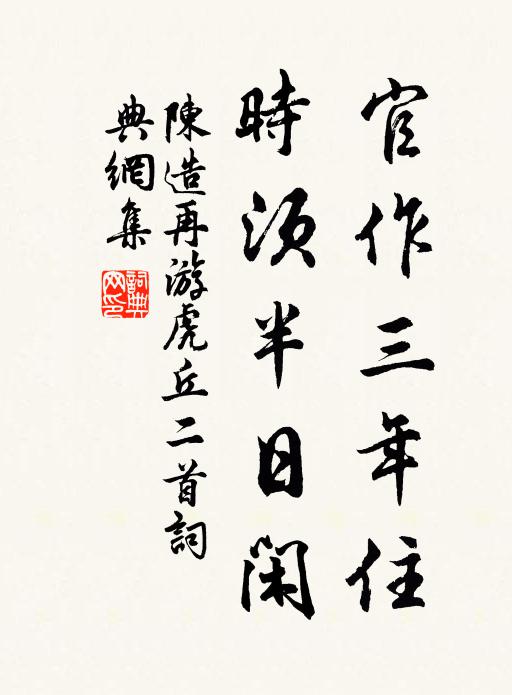 官作三年住
時須半日閑
陳造再游虎丘二首詞
典網集
詞典网印